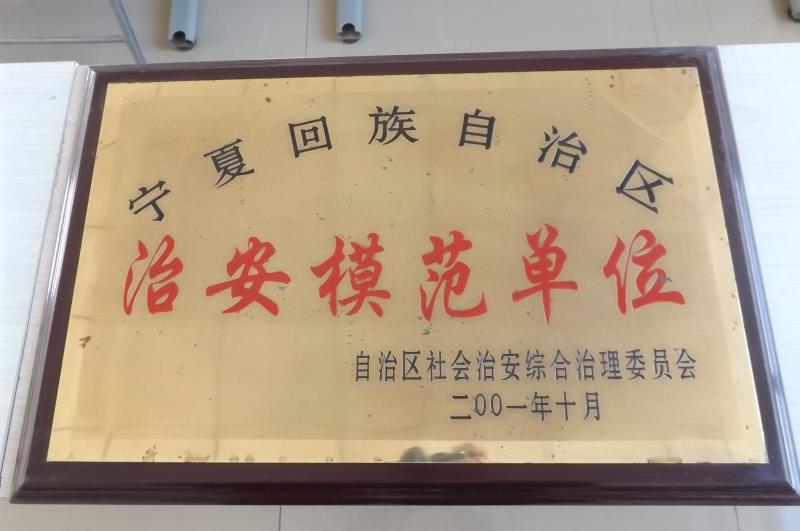 宁夏回族自治区
治安模范单位
自治区社会治安综合治理委员会
二00一年十月